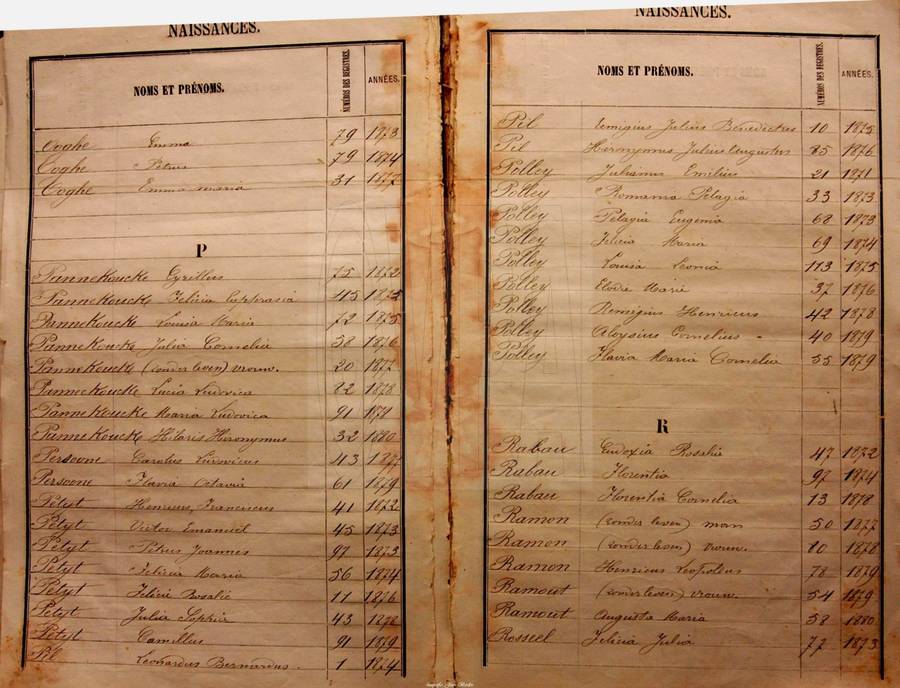 NAISSANCES.
NOMS ET PRÉNOMS. NUMÉROS DES REGISTRES. ANNÉES.
Coghe Emma 79 1873
Coghe Petrus 79 1874
Coghe Emma Maria 31 1877
P
Pannekoucke Cyrillus 75 1872
Pannekoucke Felicia Euphrasia 115 1872
Pannekoucke Louisa Maria 72 1875
Pannekoucke Julia Cornelia 38 1876
Pannekoucke (zonder leven) vrouw. 20 1877
Pannekoucke Lucia Ludovica 22 1878
Pannekoucke Maria Ludovica 91 1879
Pannekoucke Hilaris Hieronymus 32 1880
Persoone Carolus Ludovicus 43 1877
Persoone Flavia Octavia 61 1879
Petyt Henricus Franciscus 41 1872
Petyt Victor Emanuel 45 1873
Petyt Petrus Joannes 97 1873
Petyt Felicia Maria 56 1874
Petyt Felicie Rosalie 11 1876
Petyt Julia Sophia 43 1878
Petyt Camillus 91 1879
Pil Leonardus Bernardus. 1 1874
NAISSANCES.
NOMS ET PRÉNOMS. NUMÉROS DES REGISTRES. ANNÉES.
Pil Remigius Julius Benedictus 10 1875
Pil Hieronymus Julius Augustus 85 1876
Polley Julianus Emilius 21 1871
Polley Romania Pelagia 33 1873
Polley Pelagia Eugenia 68 1873
Polley Felicia Maria 69 1874
Polley Louisa Leonia 113 1875
Polley Elodie Marie 37 1876
Polley Remigius Henricus 42 1878
Polley Aloysius Cornelius 40 1879
Polley Flavia Maria Cornelia 55 1879
R
Rabau Eudoxia Rosalia 47 1872
Rabau Florentia 97 1874
Rabau Florentia Cornelia 13 1878
Ramon (zonder leven) man 50 1877
Ramon (zonder leven) vrouw. 10 1878
Ramon Henricus Leopoldus 78 1879
Ramout (zonder leven) vrouw. 54 1879
Ramout Augusta Maria 58 1880
Rosseel Felicia Julia 77 1873